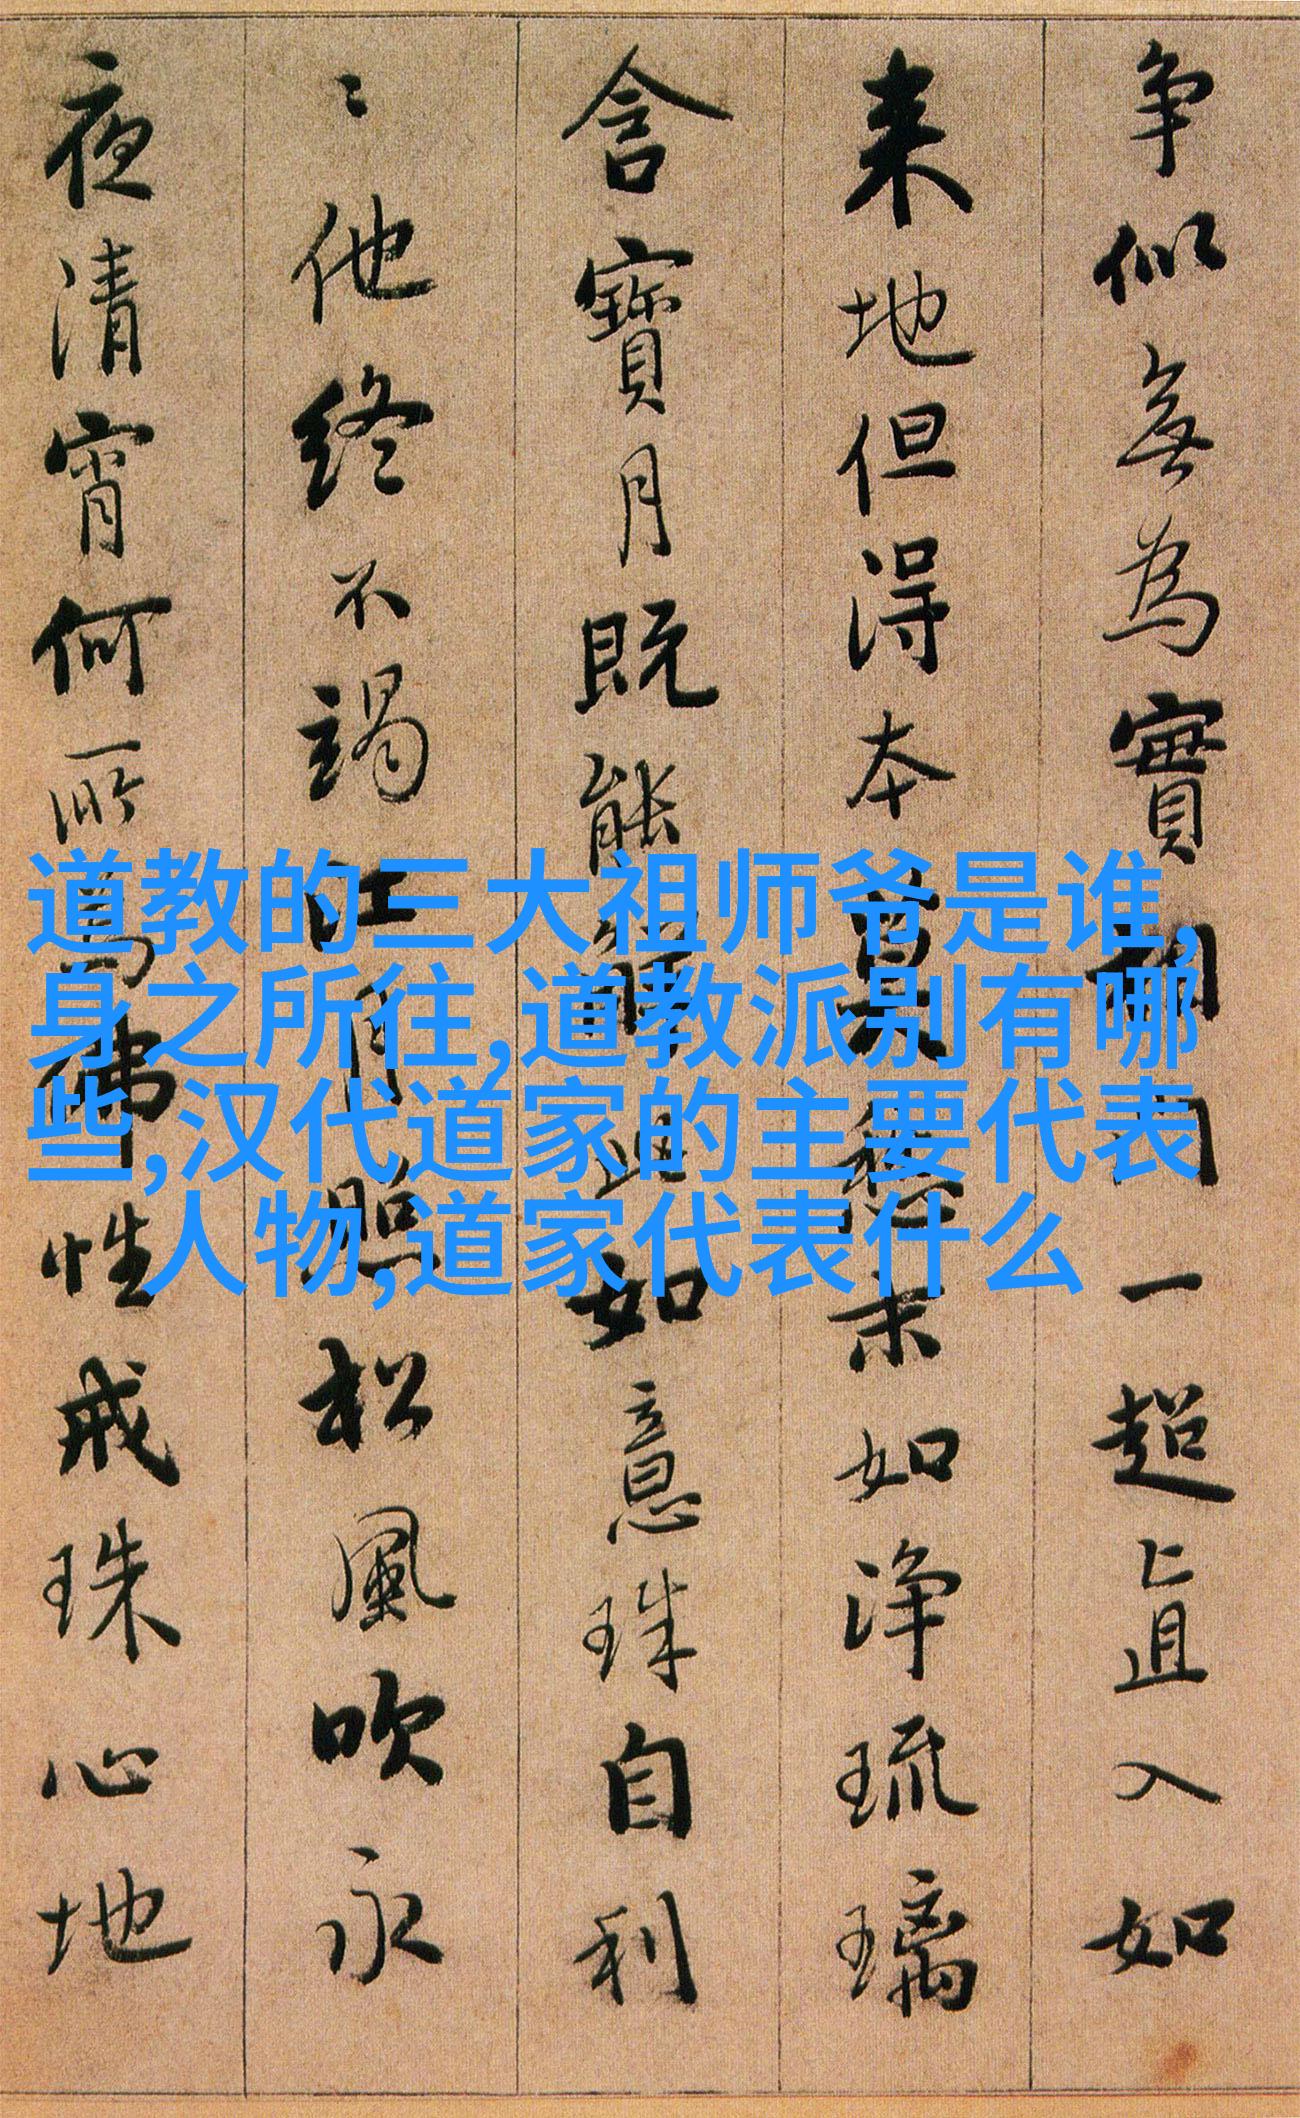 争似無為實相門一超直入如
来地但得本莫愁末如浄琉璃
含寶月既能解此如意珠自利
〻他終不竭江月照松風吹永
夜清宵何所為佛性戒珠心地
道教的三大祖师爷是谁,
身之所往,道教派别有哪
些,汉代道家的主要代表
人物,道家代表什么